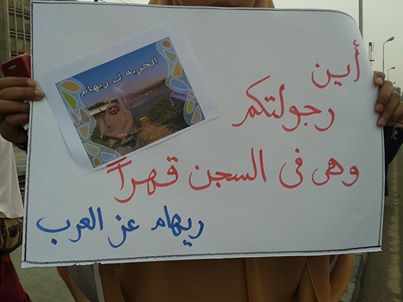 الحرية ل ريهام
أين
رجولتكم
وهى فى السجن قهراً
ريهام عز العرب